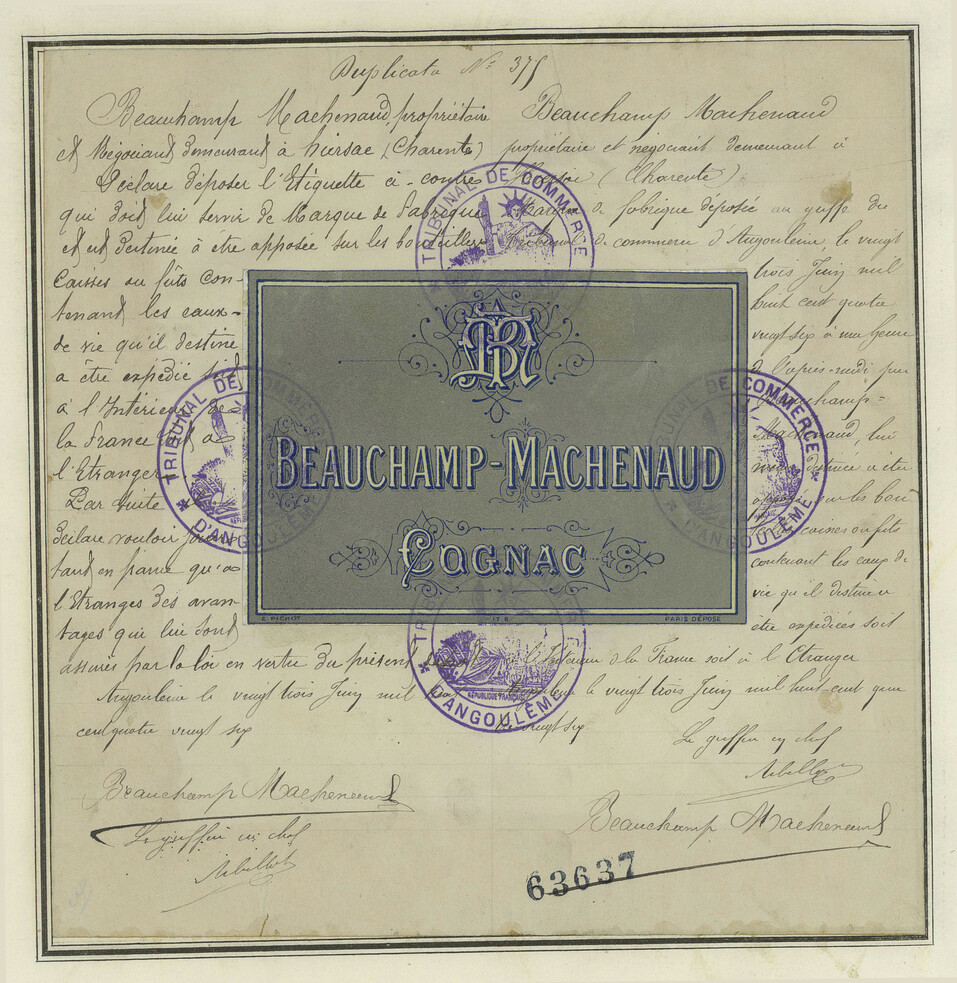 Duplicata N° 375
Beauchamp Machenaud, propriétaire
et Négociant demeurant à hiersac (Charente)
Déclare déposer l'Etiquette ci-contre
qui doit lui servir de Marque de Fabrique
et est Destinée à etre apposée sur les bouteilles
Caisses ou fûts con-
tenant les eaux-
de vie qu'il destine
a être expédié soit
à l'Intérieur de
la France soit à
l'Etranger
Par suite
déclare vouloir
tant en france qu'a
l'Etranger des avan-
tages qui lui sont
assurés par la loi en vertu du présent
Angoulême le vingt trois Juin mil
cent quatre vingt six
Beauchamp Machenaud
Le greffier en chef
Beauchamp Machenaud
propriétaire et négociant demeurant à
(Charente)
de fabrique déposée au greffe du
Tribunal de commerce d'Angoulême, le vingt
trois Juin mil
huit cent quatre
vingt six à une heure
de l'après-midi par
Beauchamp=
Machenaud, lui
destinée a être
sur les bou
caisses ou fûts
contenant les eaux de
vie qu'il destine a
être expédiées soit
à l'Intérieur de la France soit à l'Etranger
le vingt trois Juin mil huit-cent qua
vingt six
Le greffier en chef
Beauchamp Machenaud
63637
TRIBUNAL DE COMMERCE
TRIBUNAL DE COMMERCE
D'ANGOULÊME
TRIBUNAL DE COMMERCE
D'ANGOULÊME
RÉPUBLIQUE FRANÇAISE
D'ANGOULÊME
BM
BEAUCHAMP-MACHENAUD
COGNAC
E. PICHOT
PARIS DÉPOSÉ